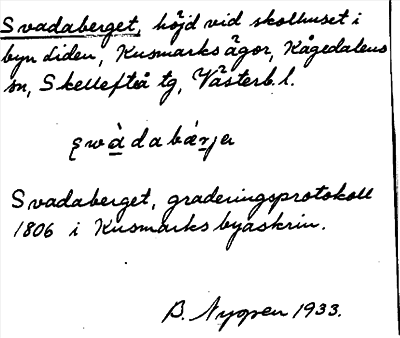 Svadaberget, höjd vid skolhuset i
byn Liden, Kusmarks ägor, Kågedalens
sn, Skellefteå tg, Västerb. l.
Swàdabærjer
Svadaberget, graderingsprotokoll
1806 i Kusmarks byaskrin.
B. Nygren 1933.